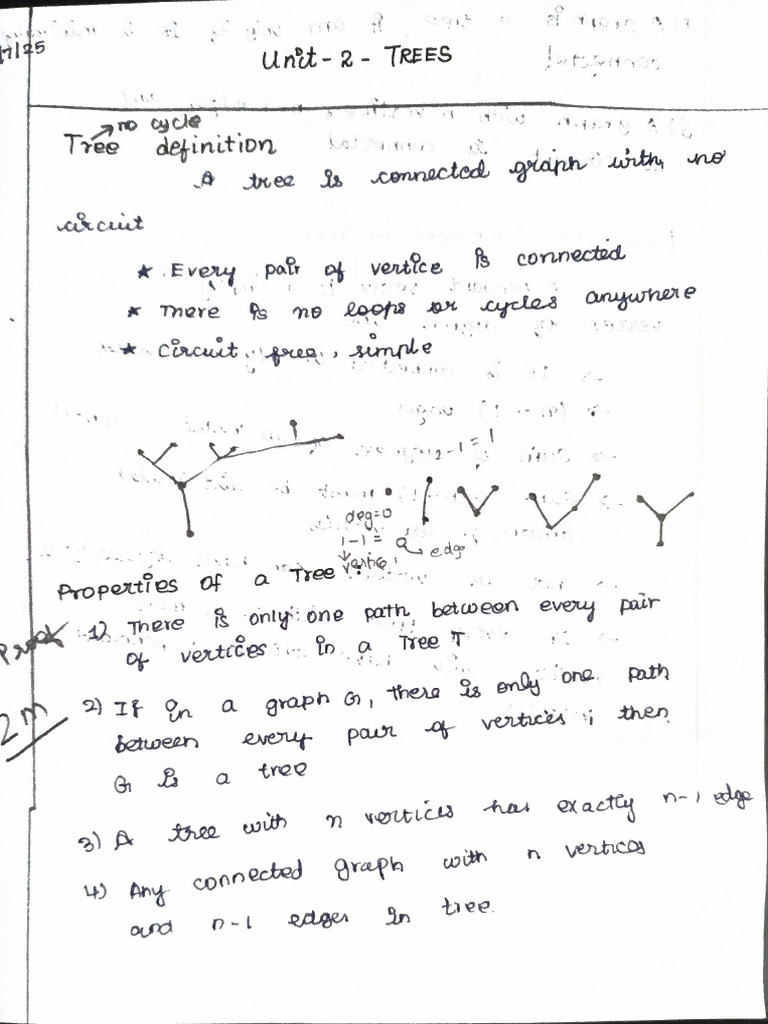 /7/25
Unit - 2 - TREES
no cycle
Tree definition
A tree is connected graph with no
circuit
* Every pair of vertice is connected
* There is no loops or cycles anywhere
* circuit free, simple
2-1 = 1
deg=0
1-1 = 0
edge
vertice
Properties of a Tree :
Proof
1) There is only one path between every pair
of vertices in a Tree T
2m
2) If in a graph G, there is only one path
between every pair of vertices ; then
G is a tree
3) A tree with n vertices has exactly n-1 edge
4) Any connected graph with n vertices
and n-1 edges in tree.